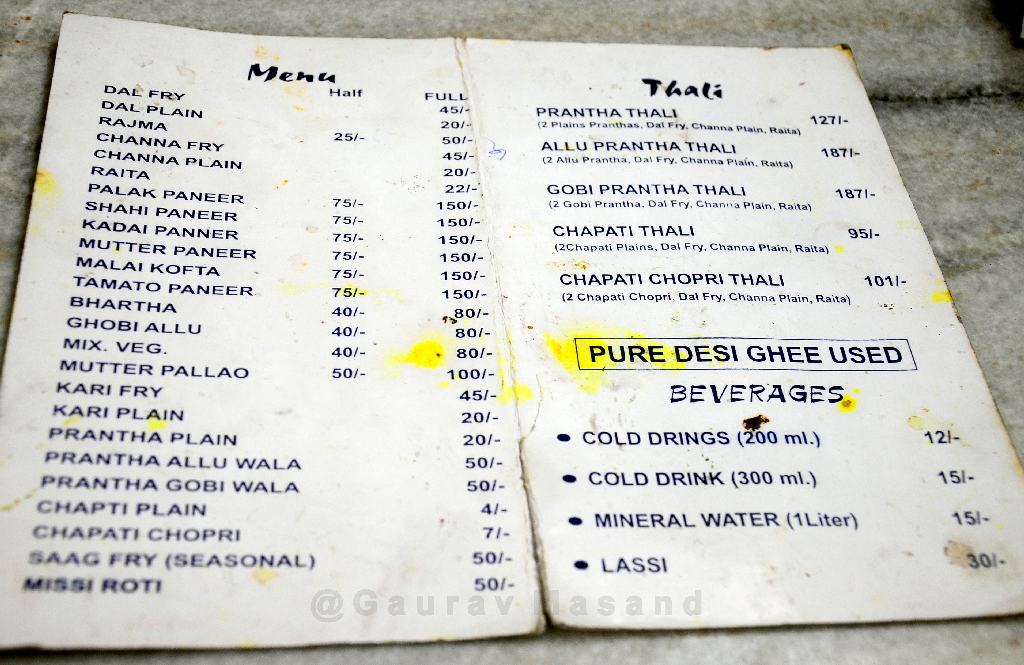 Menu
Half FULL
DAL FRY 45/-
DAL PLAIN 20/-
RAJMA 25/- 50/-
CHANNA FRY 45/-
CHANNA PLAIN 20/-
RAITA 22/-
PALAK PANEER 75/- 150/-
SHAHI PANEER 75/- 150/-
KADAI PANNER 75/- 150/-
MUTTER PANEER 75/- 150/-
MALAI KOFTA 75/- 150/-
TAMATO PANEER 75/- 150/-
BHARTHA 40/- 80/-
GHOBI ALLU 40/- 80/-
MIX. VEG. 40/- 80/-
MUTTER PALLAO 50/- 100/-
KARI FRY 45/-
KARI PLAIN 20/-
PRANTHA PLAIN 20/-
PRANTHA ALLU WALA 50/-
PRANTHA GOBI WALA 50/-
CHAPTI PLAIN 4/-
CHAPATI CHOPRI 7/-
SAAG FRY (SEASONAL) 50/-
MISSI ROTI 50/-
Thali
PRANTHA THALI 127/-
(2 Plains Pranthas, Dal Fry, Channa Plain, Raita)
ALLU PRANTHA THALI 187/-
(2 Allu Prantha, Dal Fry, Channa Plain, Raita)
GOBI PRANTHA THALI 187/-
(2 Gobi Prantha, Dal Fry, Channa Plain, Raita)
CHAPATI THALI 95/-
(2Chapati Plains, Dal Fry, Channa Plain, Raita)
CHAPATI CHOPRI THALI 101/-
(2 Chapati Chopri, Dal Fry, Channa Plain, Raita)
PURE DESI GHEE USED
BEVERAGES
• COLD DRINGS (200 ml.) 12/-
• COLD DRINK (300 ml.) 15/-
• MINERAL WATER (1Liter) 15/-
• LASSI 30/-
@Gaurav Masand